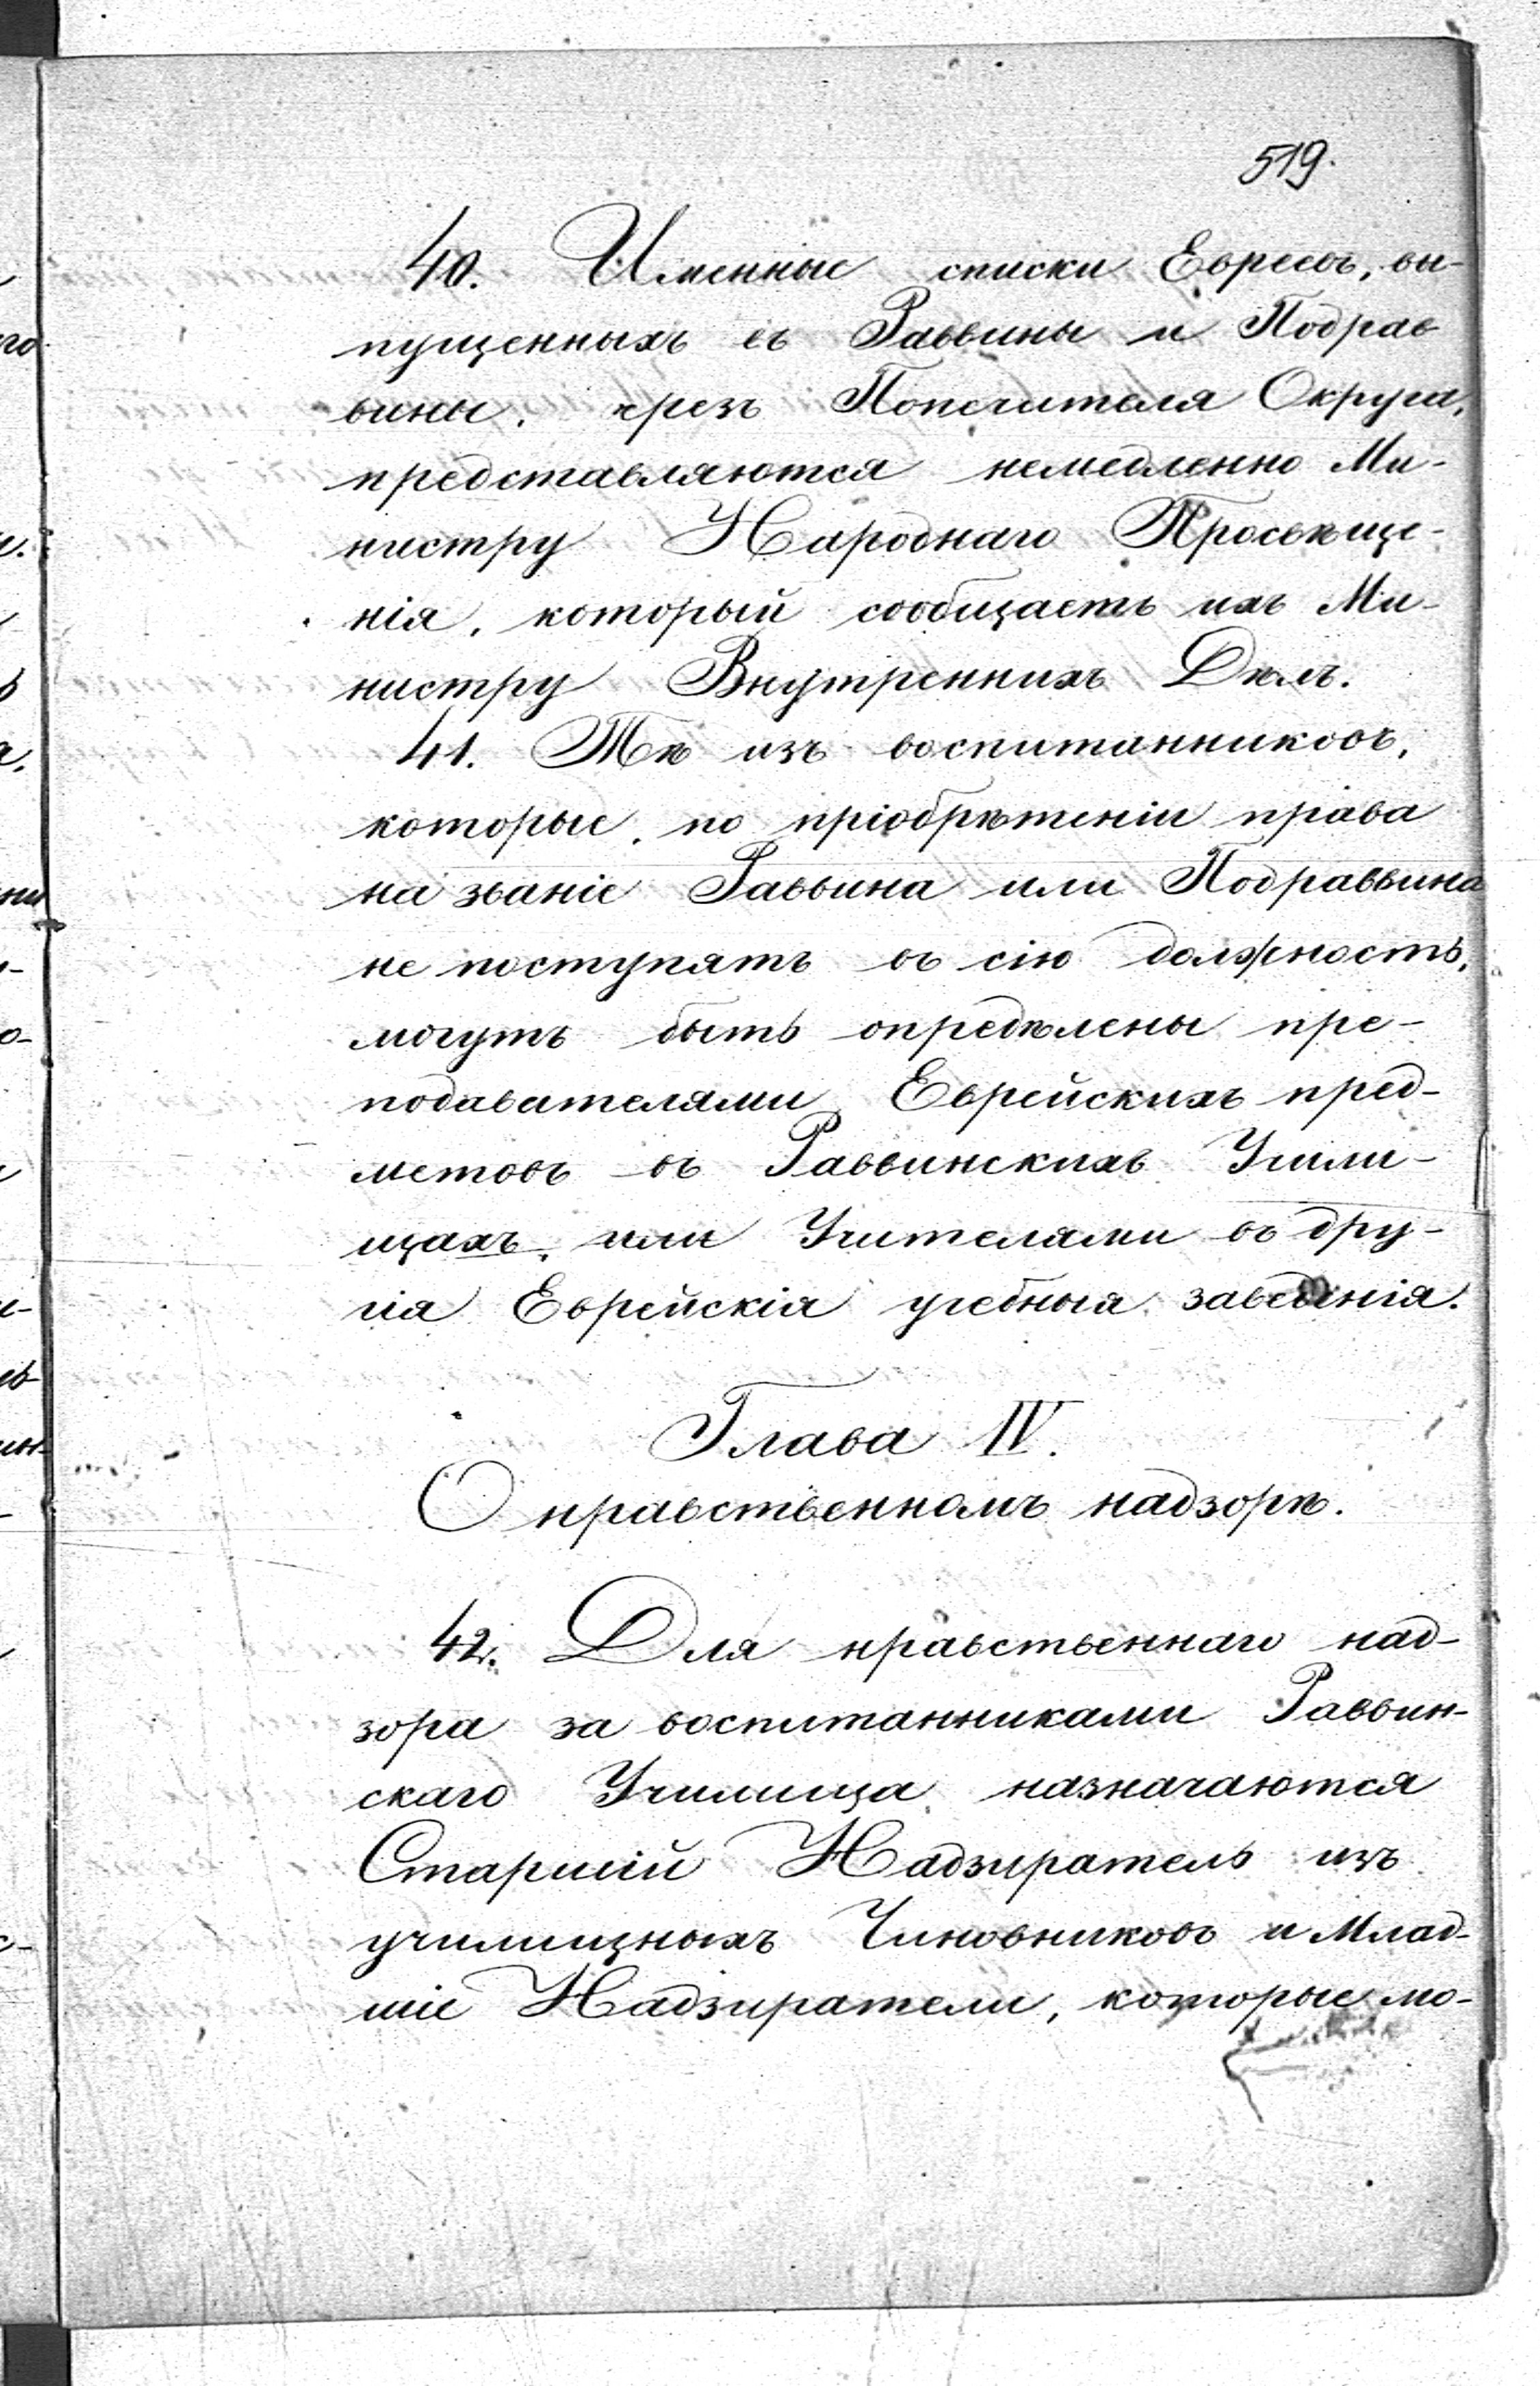 519.
40. Именные списки Евреевъ, вы-
пущенныхъ въ Раввины и Подрав
вины, чрезъ Попечителя Округа,
представляются немедленно Ми-
нистру Народнаго Просвѣще-
нія, который сообщаетъ ихъ Ми-
нистру Внутреннихъ Дѣлъ.
41. Тѣ изъ воспитанниковъ,
которые, по пріобрѣтеніи права
на званіе Раввина или Подраввина
не поступятъ въ сію должность,
могутъ быть опредѣлены пре-
подавателями Еврейскихъ пред-
метовъ въ Раввинскихъ Учили-
щахъ, или Учителями въ дру-
гія Еврейскія учебныя заведенія.
Глава IV.
О нравственномъ надзорѣ.
42. Для нравственнаго над-
зора за воспитанниками Раввин-
скаго Училища назначаются
Старшій Надзиратель изъ
училищныхъ Чиновниковъ и Млад-
шіе Надзиратели, которые мо-